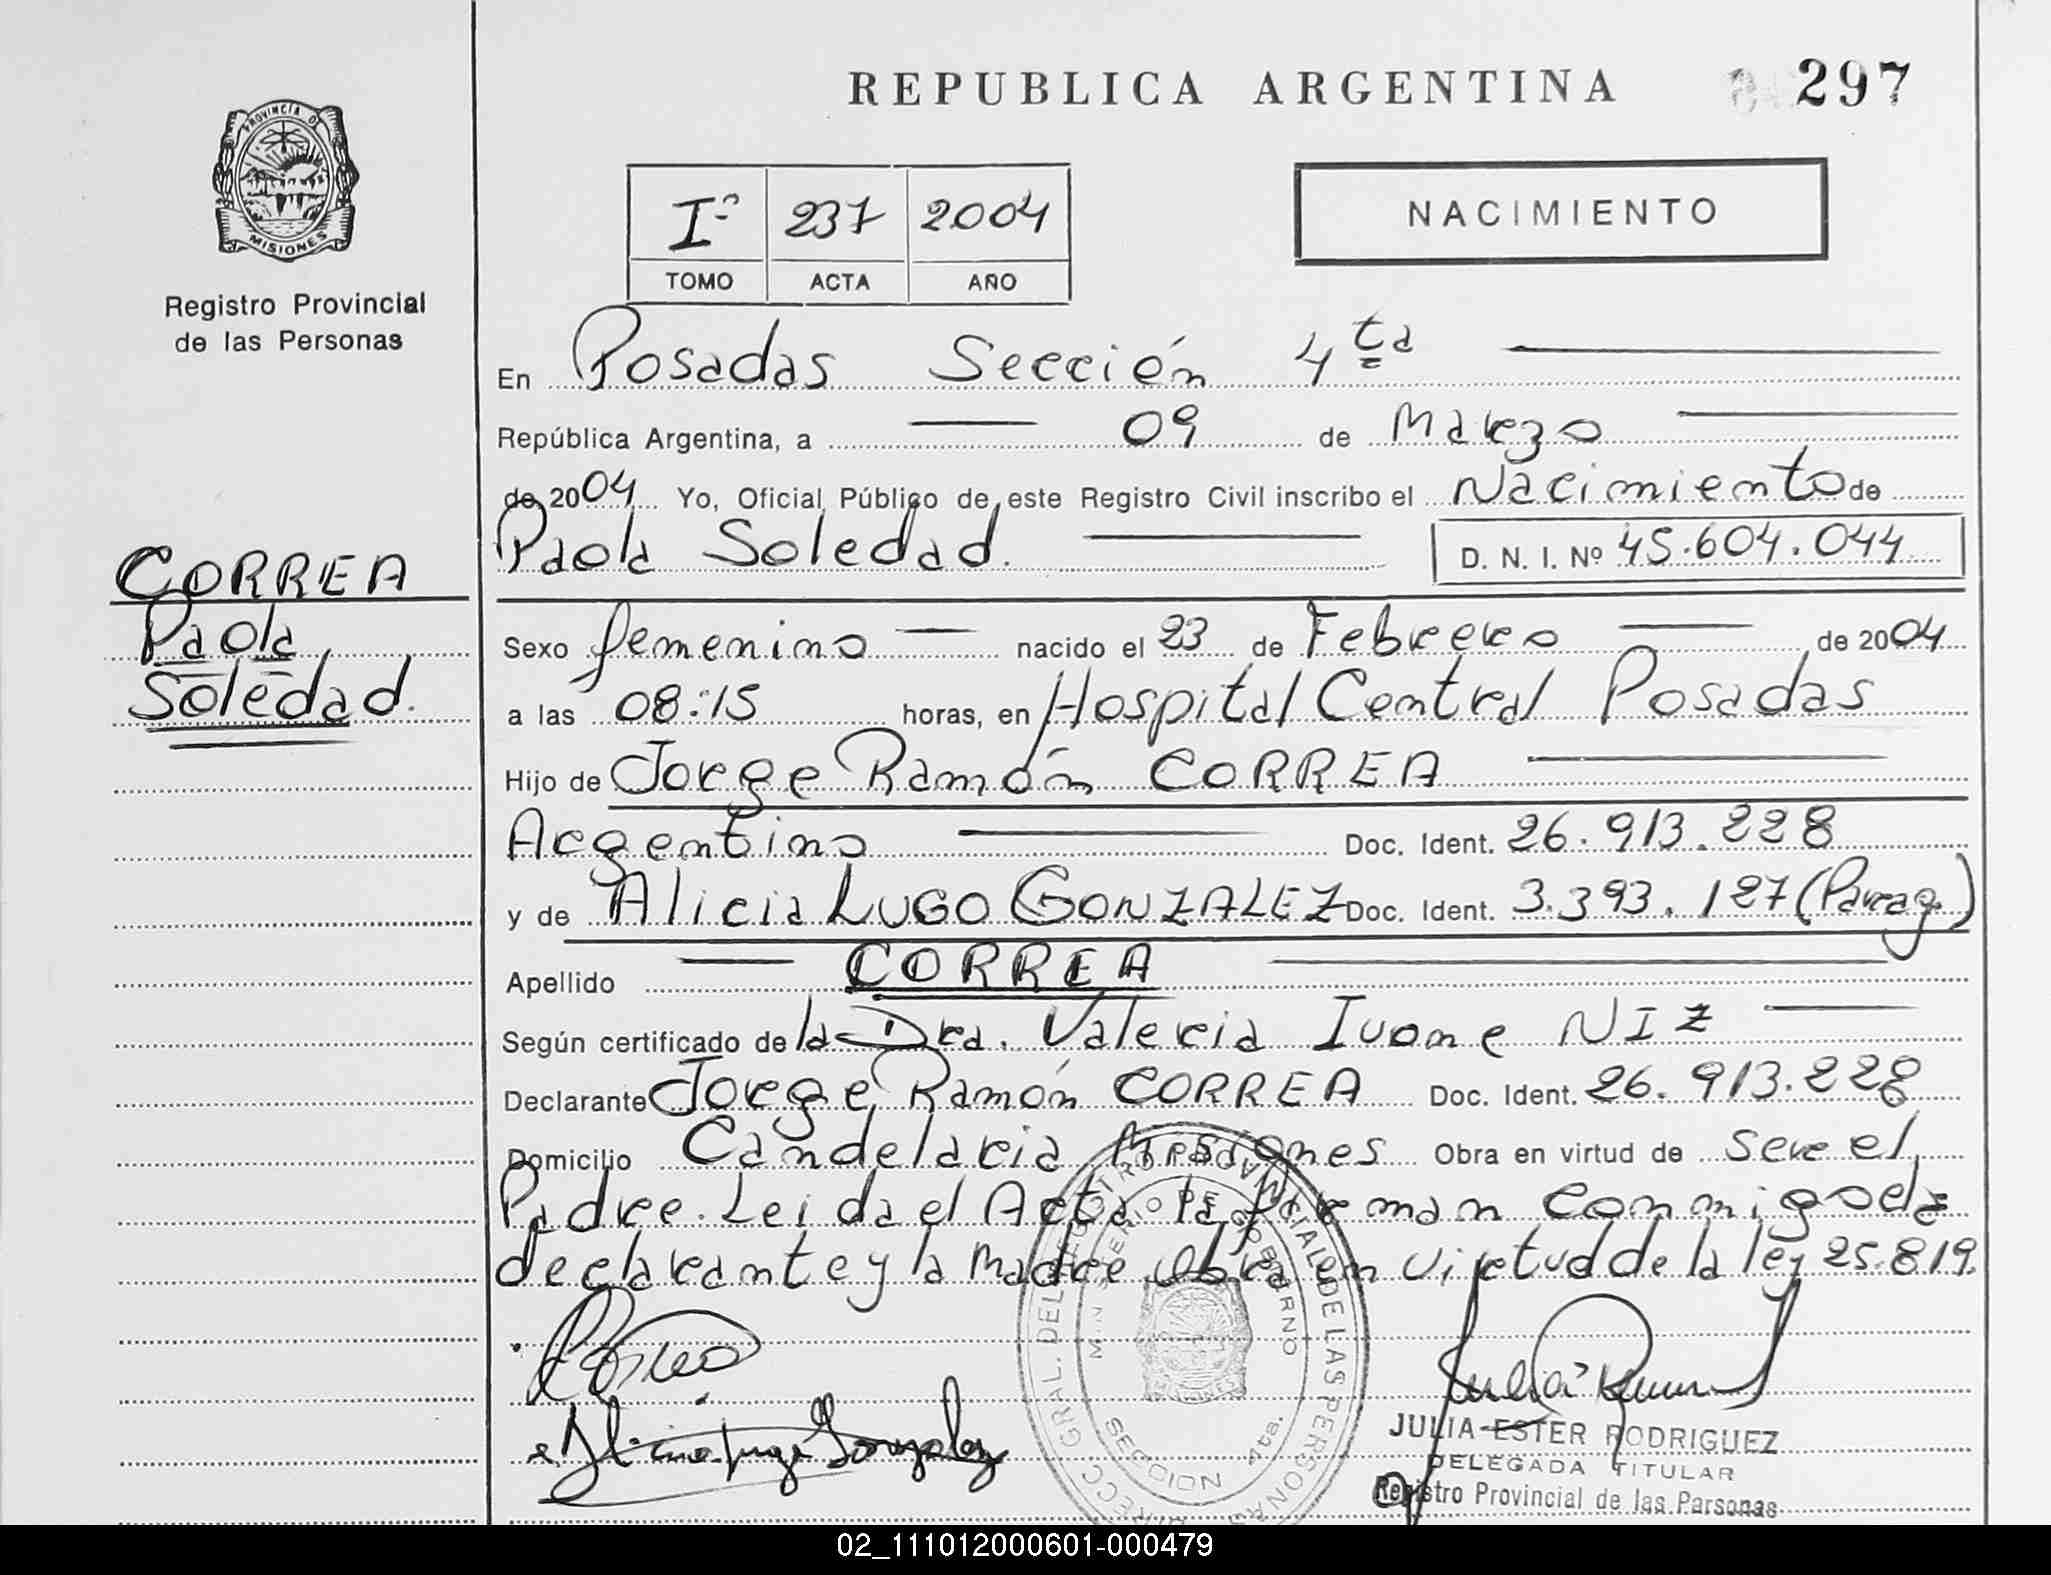 REPUBLICA ARGENTINA
297
PROVINCIA DE
MISIONES
Registro Provincial
de las Personas
Iº 237 2004
TOMO ACTA AÑO
NACIMIENTO
En Posadas Sección 4ta
República Argentina, a 09 de Marzo
de 2004 Yo, Oficial Público de este Registro Civil inscribo el Nacimiento de
Paola Soledad. D. N. I. Nº 45.604.044
CORREA
Paola
Soledad.
Sexo femenino nacido el 23 de Febrero de 2004
a las 08:15 horas, en Hospital Central Posadas
Hijo de Jorge Ramón CORREA
Argentino Doc. Ident. 26.913.228
y de Alicia LUGO GONZALEZ Doc. Ident. 3.393.127 (Parag.)
Apellido CORREA
Según certificado de la Dra. Valeria Ivone NIZ
Declarante Jorge Ramón CORREA Doc. Ident. 26.913.228
Domicilio Candelaria Misiones Obra en virtud de Ser el
Padre. Leida el Acta la firman conmigo el
declarante y la Madre Obra en virtud de la ley 25.819.
Alicia Lugo Gonzalez
DIRECC GRAL. DEL REGISTRO PROVINCIAL DE LAS PERSONAS
MINISTERIO DE GOBIERNO
SECCION 4ta.
JULIA ESTER RODRIGUEZ
DELEGADA TITULAR
Registro Provincial de las Personas
02_111012000601-000479